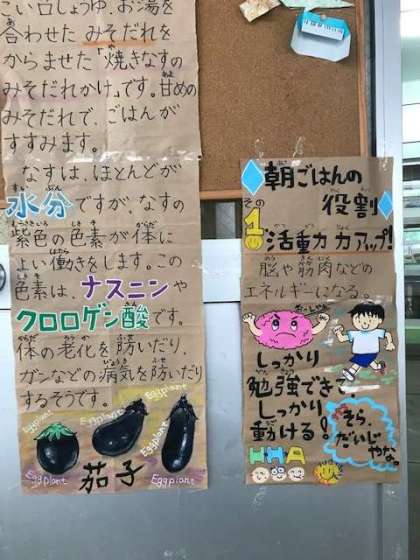 こい口しょうゆ、お湯を
合わせた みそだれを
からませた「焼きなすの
みそだれかけ」です。甘めの
みそだれで、ごはんが
すすみます。
なすは、ほとんどが
水分ですが、なすの
紫色の色素が体に
よい働きをします。この
色素は、ナスニンや
クロロゲン酸です。
体の老化を防いだり、
ガンなどの病気を防いだり
するそうです。
Eggplant
Eggplant
Eggplant
Eggplant
Eggplant
茄子
朝ごはんの
役割
その
1
活動力 力アップ!
脳や筋肉などの
エネルギーになる。
しっかり
勉強できて、
しっかり
動ける!
そら、
だいじ
やな。